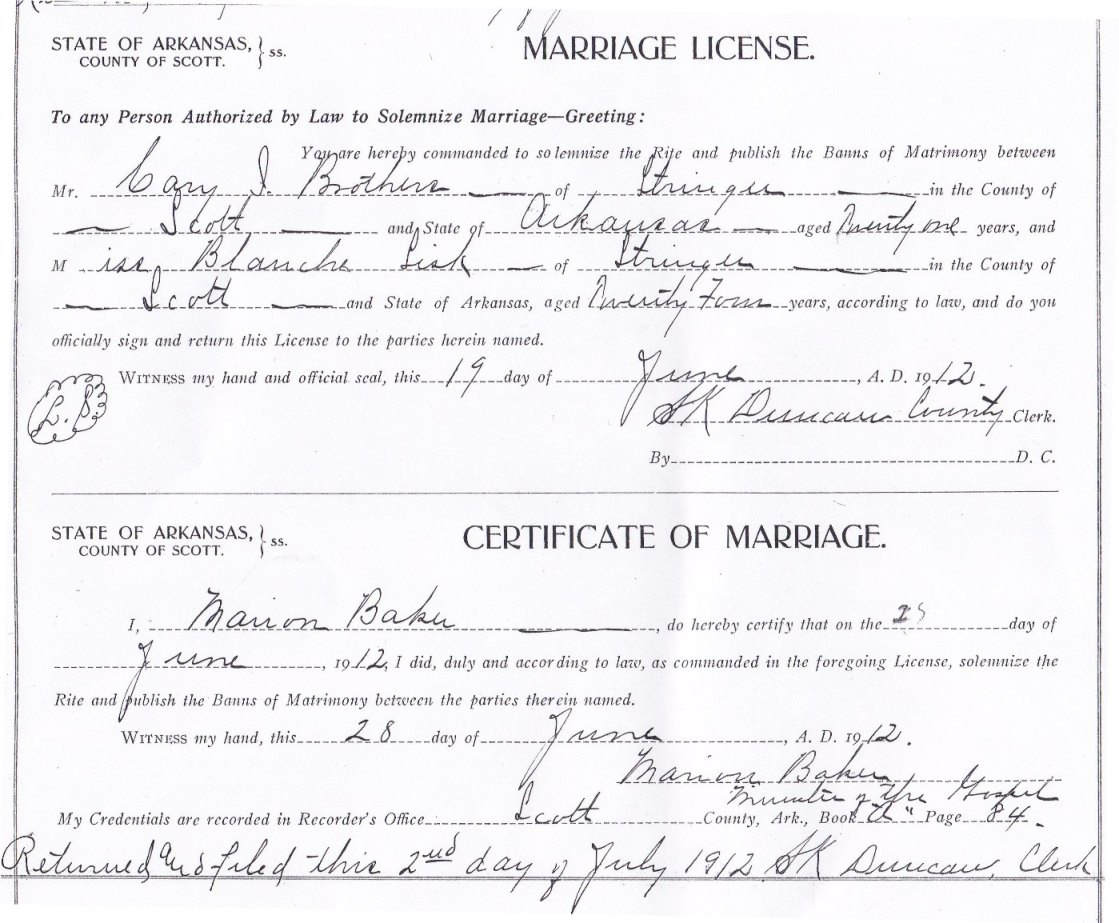 STATE OF ARKANSAS, } ss.
COUNTY OF SCOTT.
MARRIAGE LICENSE.
To any Person Authorized by Law to Solemnize Marriage—Greeting:
You are hereby commanded to solemnize the Rite and publish the Banns of Matrimony between
Mr. Cary J. Brothers of Stringer in the County of
Scott and State of Arkansas aged Twenty one years, and
Miss Blanche Sisk of Stringer in the County of
Scott and State of Arkansas, aged Twenty Four years, according to law, and do you
officially sign and return this License to the parties herein named.
WITNESS my hand and official seal, this 19 day of June, A. D. 1912.
L. S.
SK Duncan County Clerk.
By D. C.
STATE OF ARKANSAS, } ss.
COUNTY OF SCOTT.
CERTIFICATE OF MARRIAGE.
I, Marion Baker, do hereby certify that on the day of
June, 1912, I did, duly and according to law, as commanded in the foregoing License, solemnize the
Rite and publish the Banns of Matrimony between the parties therein named.
WITNESS my hand, this 28 day of June, A. D. 1912.
Marion Baker
Minister of the Gospel
My Credentials are recorded in Recorder's Office Scott County, Ark., Book "A" Page 84.
Returned and filed this 2nd day of July 1912 SK Duncan, Clerk